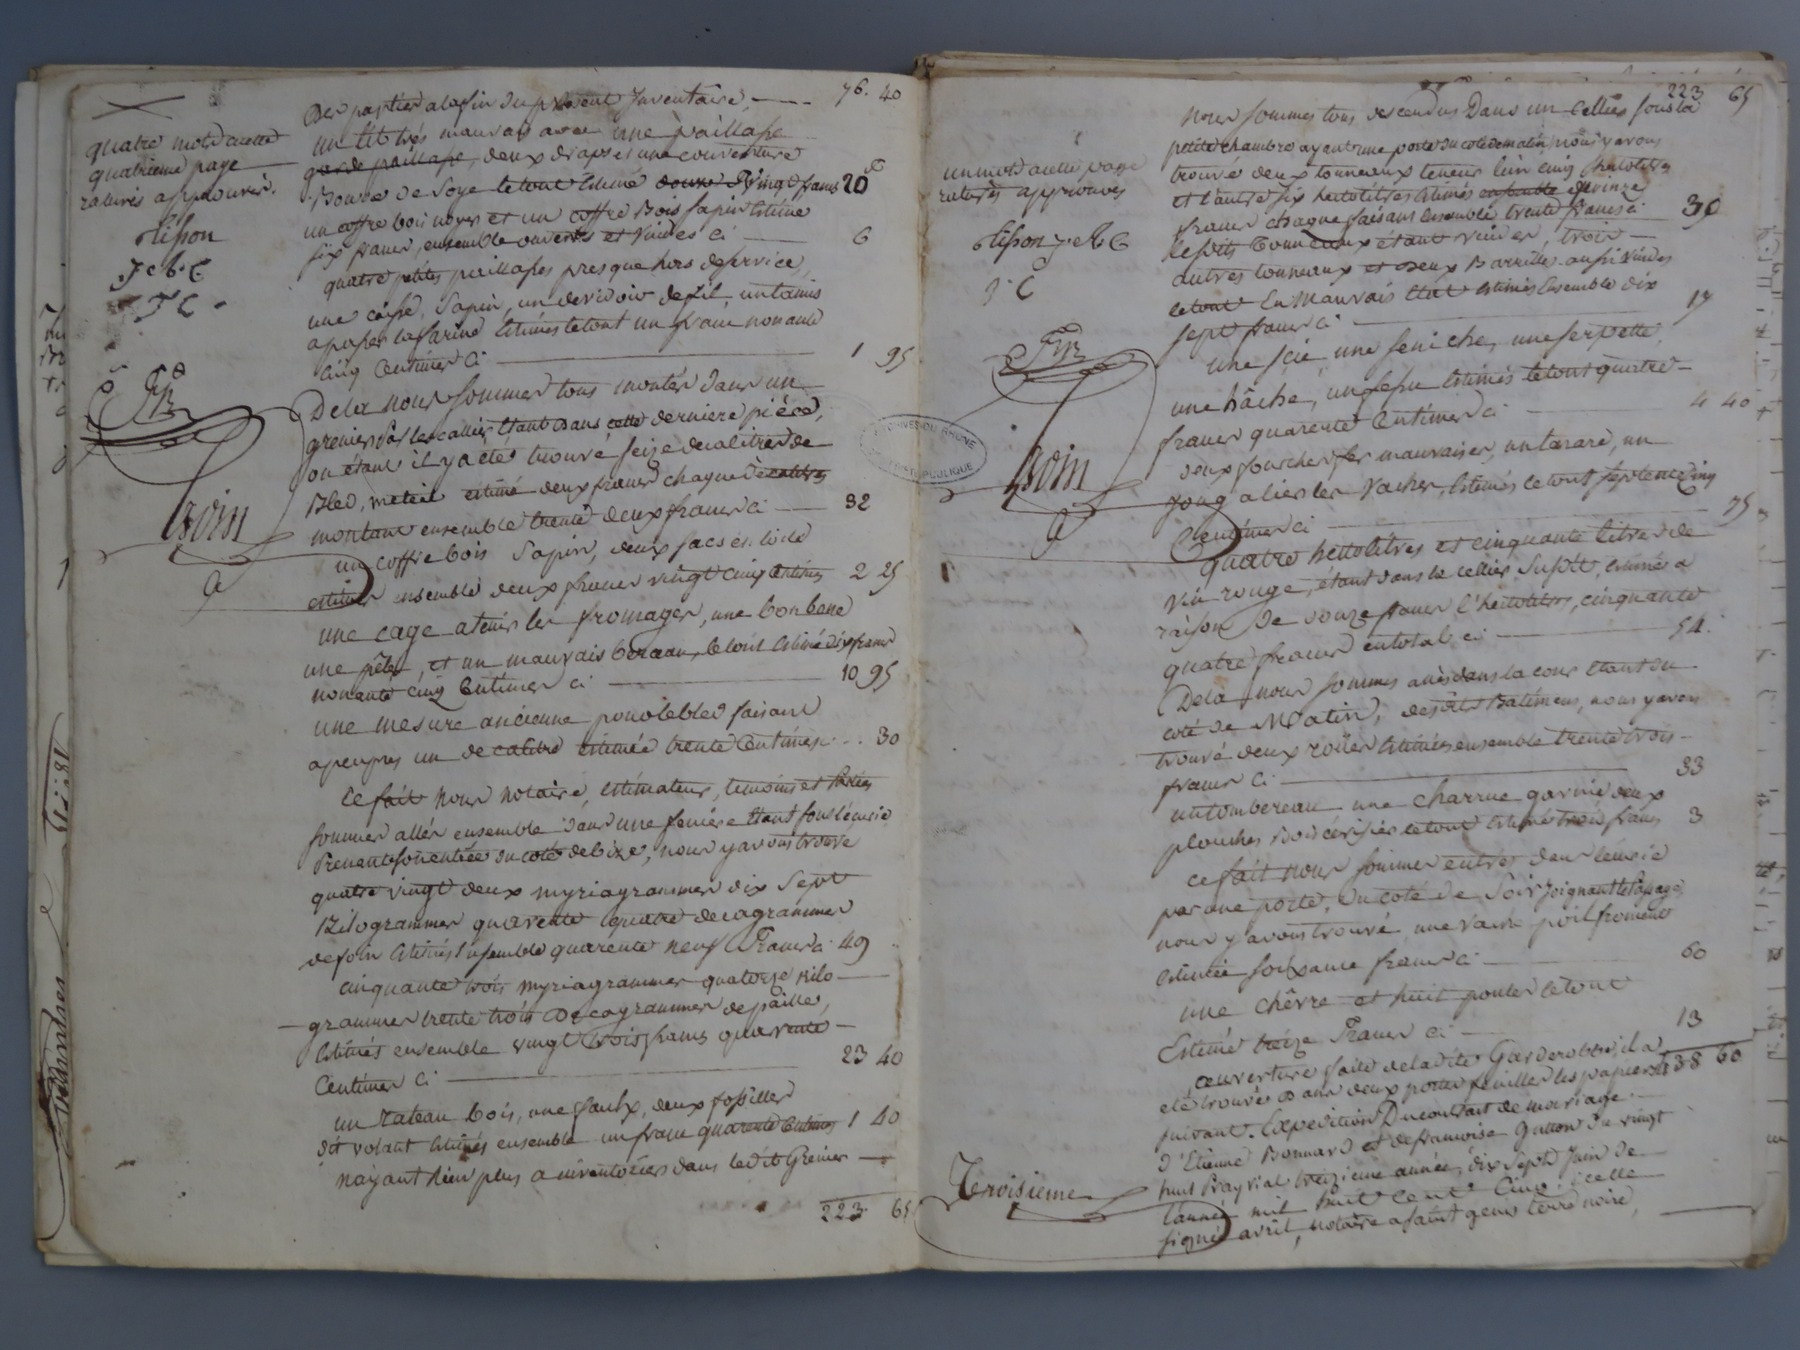 76. 40
Des parties a la fin du présent Inventaire
un lit très mauvais avec une paillasse
garde paillasse, deux draps et une couverture
Boure de Soye le tout Estimé douze vingt francs 20
un coffre bois noyer et un coffre Bois sapin Estimé
six francs, ensemble ouverts et vuides ci 6
quatre petites paillasses presque hors de service,
une caisse, sapin, un devidoir de fil, un tamis
a passer la farine Estimés le tout un franc nonante
cinq Centimes Ci 1 95
De la nous sommes tous montés dans un
grenier par l'escallier étant dans cette derniere piéce,
ou étant il y a été trouvé seize decalitres de
Bled, meteil estimé deux francs chaque decalitres
montant ensemble trente deux francs ci 32
un coffre bois Sapin, deux sacs en toile
estimés ensemble deux francs vingt cinq centimes 2 25
une cage a tenir les fromages, une bonbane
une pêle, et un mauvais berceau, le tout Estimé dix francs
nonante cinq Centimes ci 10 95
une mesure ancienne pour le bled faisant
a peu pres un decalitre estimée trente Centimes 30
Ce fait Nous notaire, estimateur, temoins et parties
sommes allés ensemble dans une feniere étant sous l'écurie
Prenante son entrée du coté de bize, nous y avons trouvé
quatre vingt deux myriagrammes dix Sept
Kilogrammes quarente quatre decagrammes
de foin Estimés Ensemble quarente neuf Francs ci 49
cinquante trois myriagrammes quatorze kilo
grammes trente trois Decagrammes de paille,
Estimés ensemble vingt trois francs quarente
Centimes Ci 23 40
un Rateau bois, une faulx, deux fossilles
dit volant Estimés ensemble un franc quarente Centimes 1 40
n'ayant Rien plus a inventorier dans ledit Grenier
223. 65
quatre mots a cette
quatrieme page
raturés approuvés.
tisson
J e b. C
J C
Goin
223 65
Nous sommes tous descendus Dans un Cellier sous la
petite chambre ayant une porte du coté de matin, nous y avons
trouvé deux tonneaux teneur l'un cinq hectolitres
et l'autre six hectolitres Estimés ensemble quinze
francs chaque faisant Ensemble trente francs ci 30
lesdits tonneaux étant vuides, trois
autres tonneaux et deux Barrilles aussi vuides
le tout En Mauvais état Estimés Ensemble dix
sept francs ci 17
une scie, une seniche, une serpette,
une hâche, un Estimés le tout quatre
francs quarente Centimes ci 4 40
deux fourches fer mauvaises, un tarare, un
joug a lier les Vaches, Estimés le tout septente cinq
Centimes ci 75
Quatre hectolitres et cinquante litres de
vin rouge, étant dans le cellier Susdit, estimés a
raison De douze francs l'hectolitre, cinquante
quatre francs en total ci 54.
De la nous sommes allés dans la cour étant du
coté de Matin, desdits Batimens, nous y avons
trouvé deux roües Estimées ensemble trente trois
francs Ci 33
un tombereau une charrue garnie deux
plouches Bois cérisier le tout Estimé trois francs 3
ce fait nous sommes entrés dans l'écurie
par une porte, Du coté de Soir joignant le Passage
nous y avons trouvé une vache poil froment
Estimée soixante francs ci 60
une chêvre et huit poules le tout
Estimé treize Francs Ci 13
ouverture faite de ladite Garderobbe, il a 438 60
eté trouvé dans deux portefeuilles les papiers
suivant. Expedition Du contrat de mariage
d'Etienne Bonnard et de françoise Gutton du vingt
huit Prayrial treizieme année, dix Sept Juin de
l'année mil huit Cent Cinq; icelle
signée avril, notaire a saint genis terre noire,
un mot a cette page
raturés approuvés
tisson J e b C
J. C
Goin
Troisieme
ARCHIVES DU RHÔNE
RÉPUBLIQUE